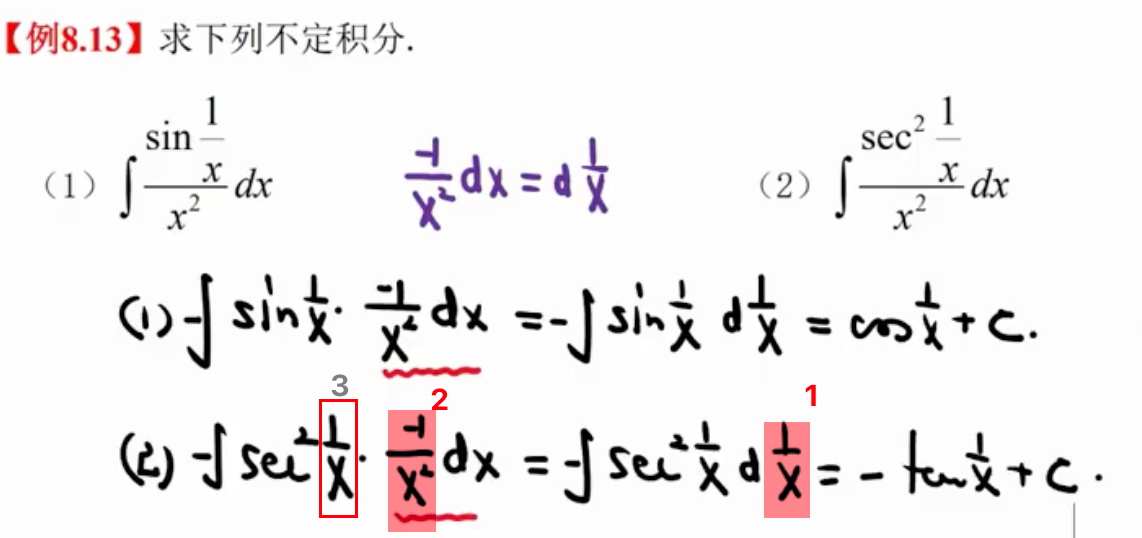 【例8.13】求下列不定积分.
（1）∫ (sin 1/x)/x² dx   -1/x² dx = d 1/x   （2）∫ (sec² 1/x)/x² dx
(1) -∫ sin 1/x · -1/x² dx = -∫ sin 1/x d 1/x = cos 1/x + C.
3 2 1
(2) -∫ sec² 1/x · -1/x² dx = -∫ sec² 1/x d 1/x = - tan 1/x + C.